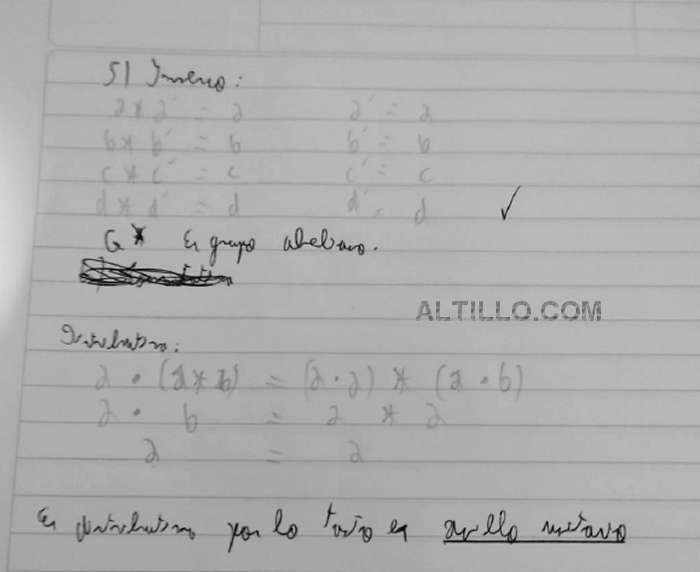 5) Inverso:
a * a' = a    a' = a
b * b' = b    b' = b
c * c' = c    c' = c
d * d' = d    d' = d ✓
G * Es grupo abeliano.
ALTILLO.COM
Distributivo:
a · (a * b) = (a · a) * (a · b)
a · b = a * a
a = a
Es distributivo por lo tanto es anillo unitario